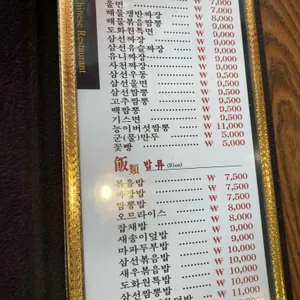 Chinese Restaurant
울면 ₩ 7,000
해물쟁반짜장 ₩ 7,000
해물볶음짬뽕 ₩ 8,000
도화원특면 ₩ 9,000
삼선짜장 ₩ 9,000
삼선유슬짜장 ₩ 9,000
유니짜장 ₩ 9,000
사천짜장 ₩ 9,000
삼선우동 ₩ 9,500
삼선울면 ₩ 9,500
삼선짬뽕 ₩ 9,500
고추짬뽕 ₩ 9,500
백짬뽕 ₩ 9,500
기스면 ₩ 9,500
능이버섯짬뽕 ₩ 11,000
군(물)만두 ₩ 5,000
꽃빵 ₩ 5,000
飯類 밥류 (Rice)
볶음밥 ₩ 7,500
짜장밥 ₩ 7,500
짬뽕밥 ₩ 8,000
오므라이스 ₩ 8,000
잡채밥 ₩ 9,000
새송이덮밥 ₩ 9,000
마파두부밥 ₩ 9,000
삼선볶음밥 ₩ 10,000
새우볶음밥 ₩ 10,000
도화원특밥 ₩ 10,000
삼선짬뽕밥 ₩ 11,000